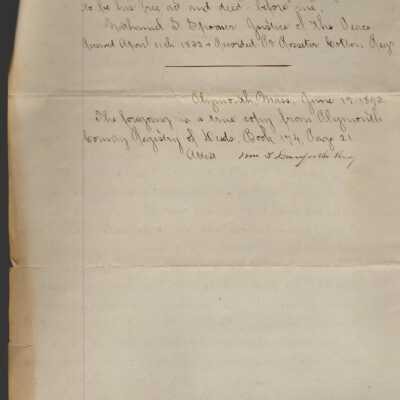 to be his free act and deed - before me,
Nathaniel S Spooner Justice of the Peace
Received April 11th 1832 & Recorded Pr Rossiter Cotton Regr
Plymouth, Mass, June 17, 1892
The foregoing is a true copy from Plymouth
County Registry of Deeds, Book 174, Page 21
Attest Wm S Danforth Reg